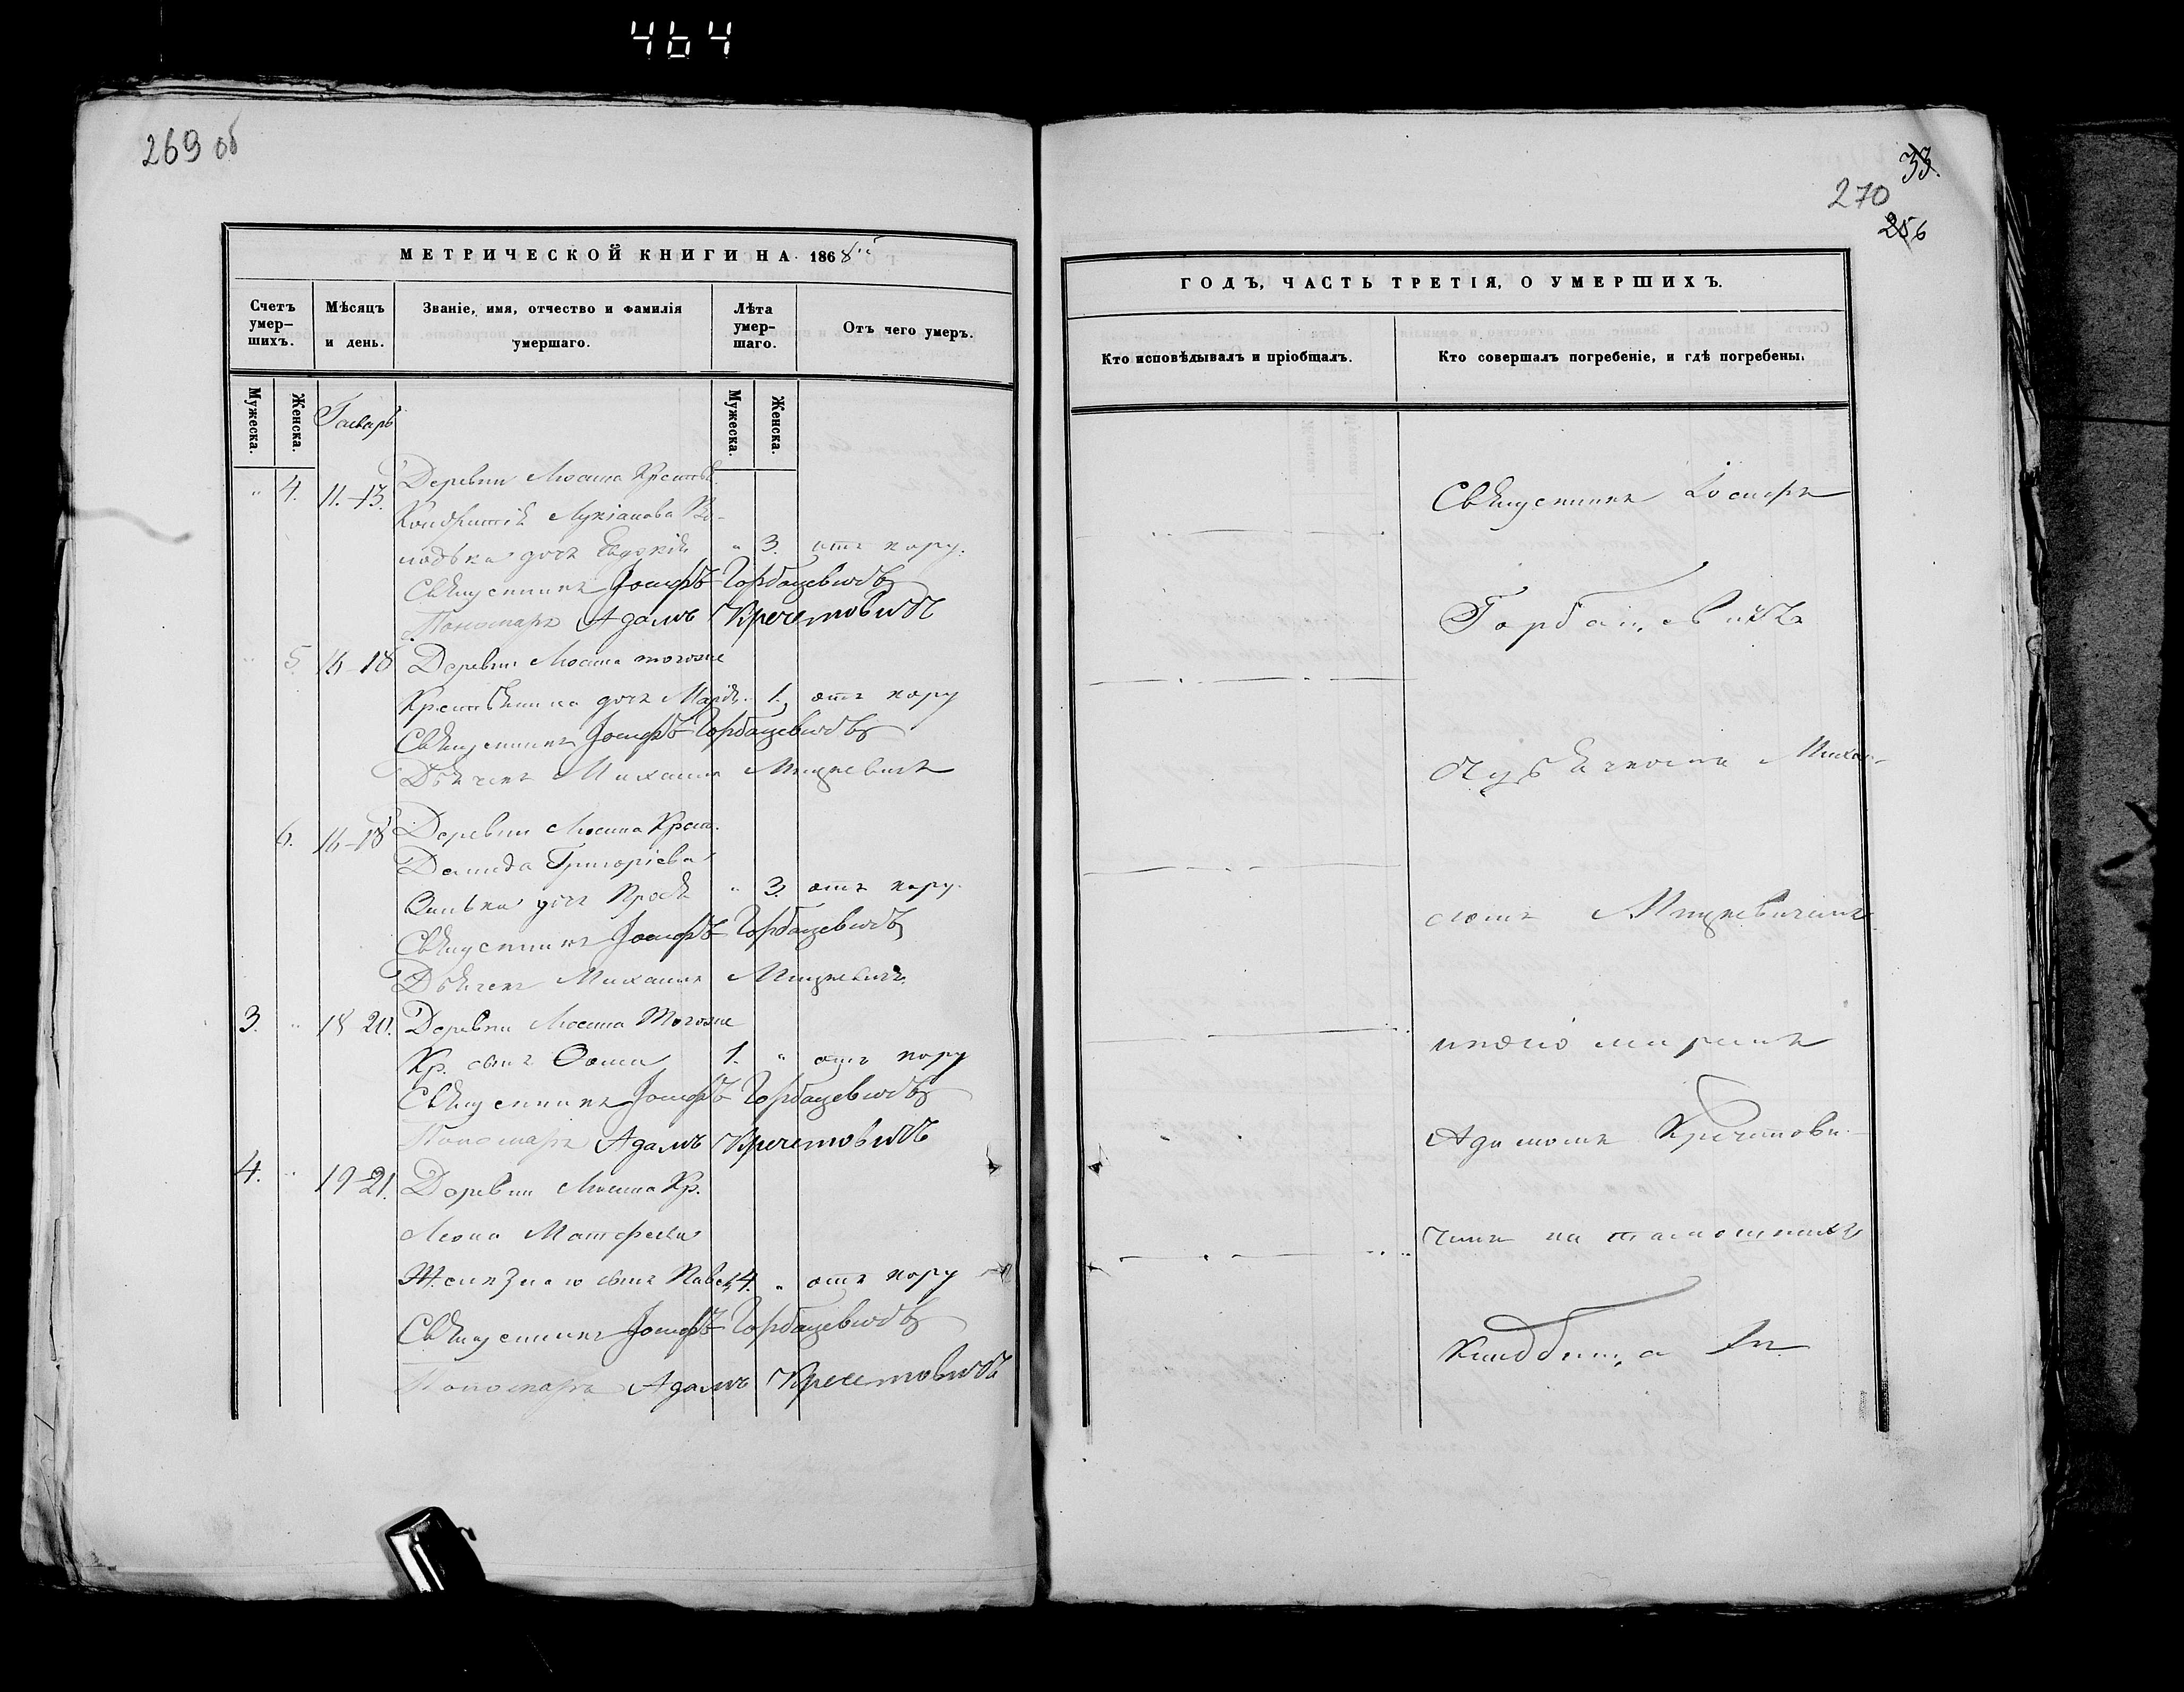 464
269 об
33.
270
256
МЕТРИЧЕСКОЙ КНИГИ НА 1868й
Счетъ умер-шихъ.
Мѣсяцъ и день.
Званіе, имя, отчество и фамилія умершаго.
Лѣта умер-шаго.
Отъ чего умеръ.
Мужеска.
Женска.
Январь
Мужеска.
Женска.
" 4. 11.-13. Деревни Люсина Крестьян.
Кондратія Лукіанова
дочь Евдокія " 3. отъ кору.
Священникъ Іосифъ Горбацевичъ
Пономарь Адамъ Кречетовичъ
" 5 16-18 Деревни Люсина тогоже
Крестьянина дочь Марія. 1. отъ кору
Священникъ Іосифъ Горбацевичъ
Дьячекъ Михаилъ Мицкевичъ
6. 16-18 Деревни Люсина Крест.
Григоріева
дочь " 3. отъ кору.
Священникъ Іосифъ Горбацевичъ
Дьячекъ Михаилъ Мицкевичъ
3. " 18-20. Деревни Люсина Тогоже
Кр. сынъ Ѳома 1. " отъ кору
Священникъ Іосифъ Горбацевичъ
Пономарь Адамъ Кречетовичъ
4. " 19-21. Деревни Люсина Кр.
Леона Матфеева
сынъ Павелъ 4. " отъ кору
Священникъ Іосифъ Горбацевичъ
Пономарь Адамъ Кречетовичъ
ГОДЪ, ЧАСТЬ ТРЕТІЯ, О УМЕРШИХЪ.
Кто исповѣдывалъ и пріобщалъ.
Кто совершалъ погребеніе, и гдѣ погребены.
Священникъ Іосифъ
Горбацевичъ
съ Дьячкомъ Михаи-
ломъ Мицкевичемъ
и пономаремъ
Адамомъ Кречетови-
чемъ на тамошнихъ
кладбищахъ